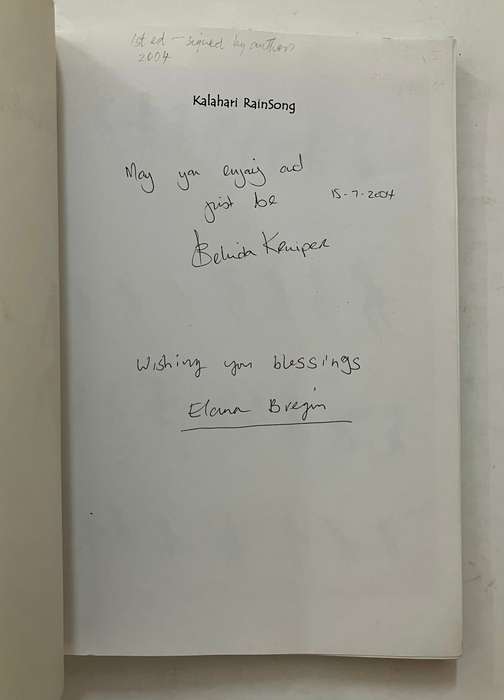 1st ed – signed by authors
2004
Kalahari RainSong
May you enjoy ad
just be
15-7-2004
Belinda Kruiper
Wishing you blessings
Elana Bregin